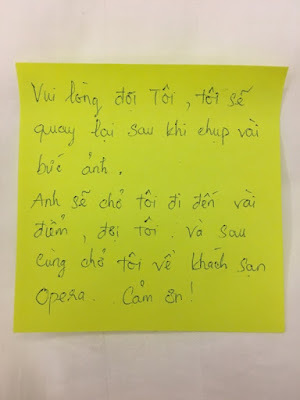 Vui lòng đợi Tôi, tôi sẽ
quay lại sau khi chụp vài
bức ảnh.
Anh sẽ chở tôi đi đến vài
điểm, đợi Tôi. và sau
cùng chở tôi về khách sạn
Opera. Cảm ơn!